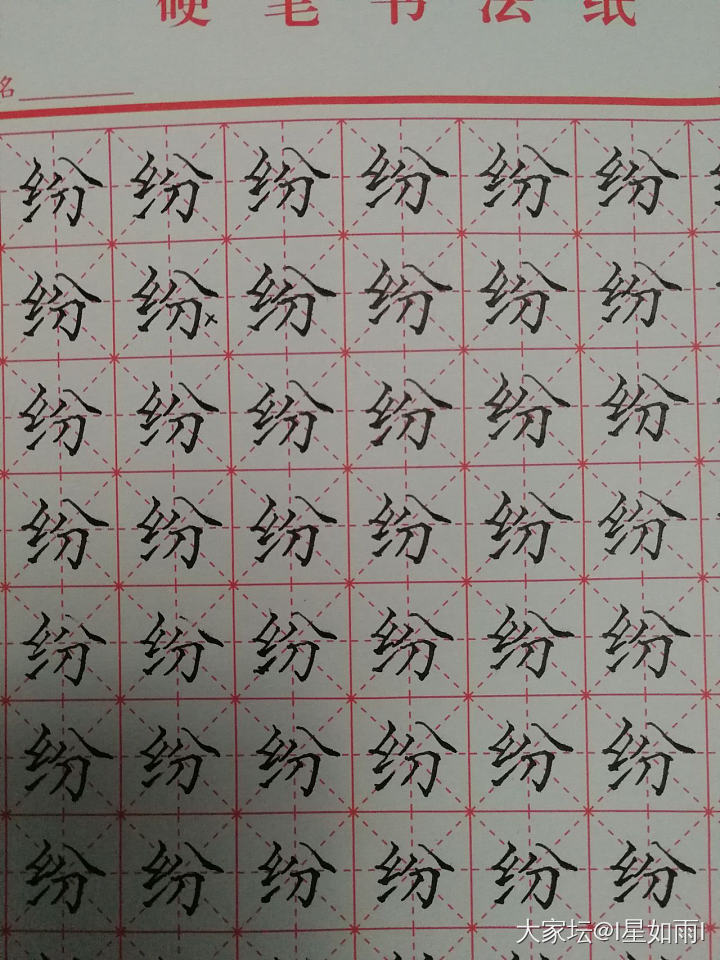 硬笔书法纸
名
纷 纷 纷 纷 纷 纷
纷 纷 × 纷 纷 纷 纷
纷 纷 纷 纷 纷 纷
纷 纷 纷 纷 纷 纷
纷 纷 纷 纷 纷 纷
纷 纷 纷 纷 纷 纷
纷 纷 纷 纷 纷 纷
大家坛@I星如雨I